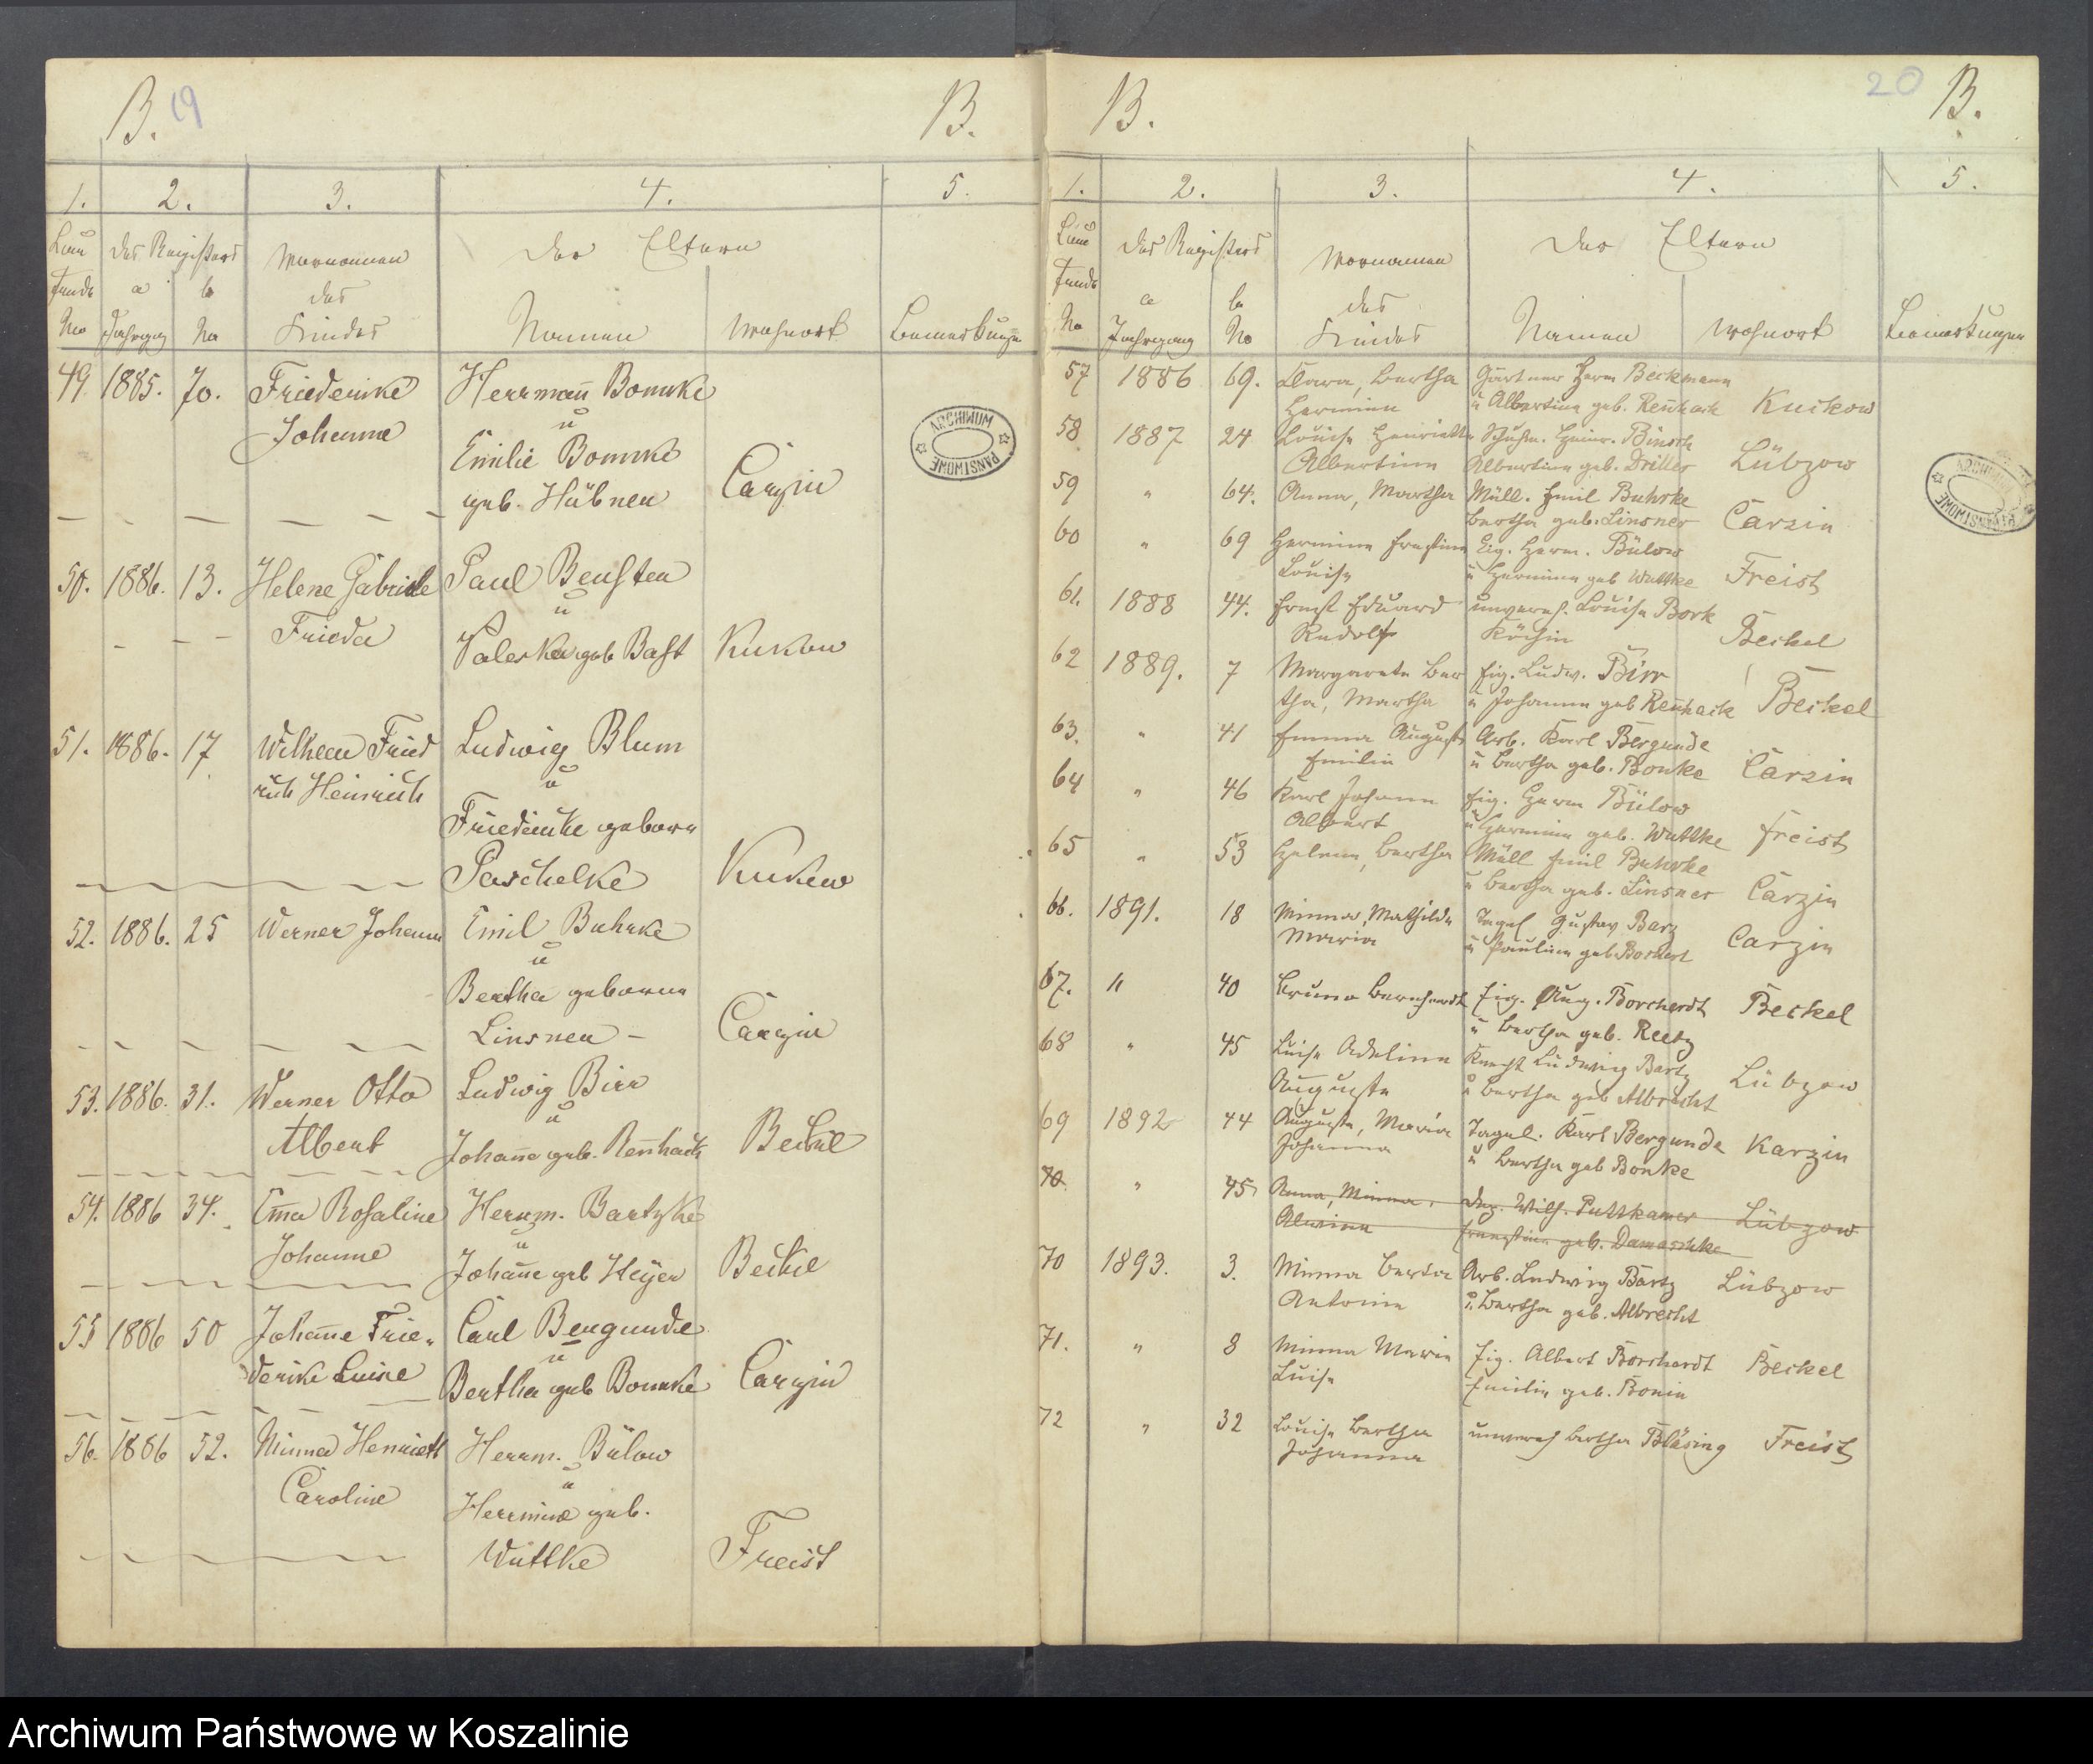 B. 19 B.
1. 2. 3. 4. 5.
Lau des Registers Vornamen Der Eltern
fende a b des
No Jahrgang No Kindes Namen Wohnort Bemerkungen
49. 1885. 70. Friederike Herrmann Bomke
Johanne u
Emilie Bomke
geb. Hübner Carzin
50. 1886. 13. Helene Gabriele Paul
u
Frieda Valeska geb Bast Kukow
51. 1886. 17 Wilhelm Fried Ludwig Blum
rich Heinrich u
Friederike geborne
Paschelke Kukow
52. 1886. 25 Werner Johann Emil Buhrke
u
Bertha geborne
Linsner – Carzin
53. 1886. 31. Werner Otto Ludwig Birr
u
Albert Johanne geb. Rennhack Beckel
54. 1886 34. Emma Rosaline Herrm. Bartzke
u
Johanne Johanne geb Heyer Beckel
55 1886 50 Johanne Frie- Carl Bergunde
u
derike Luise Bertha geb Bomke Carzin
56. 1886 52. Minna Henriett Herrm. Bülow
u
Caroline Hermine geb.
Wuttke Freist
ARCHIWUM PAŃSTWOWE
B. 20 B.
1. 2. 3. 4. 5.
Lau des Registers Vornamen Der Eltern
fende a b des
No Jahrgang No Kindes Namen Wohnort Bemerkungen
57 1886 69. Clara, Bertha Gärtner Herm Beckmann
Hermine u Albertine geb. Rennhack Kuckow
58 1887 24 Louise Henriette Schuhm. Heinr. Binsch
Albertine Albertine geb. Driller Lübzow
59 " 64. Anna, Martha Müll. Emil Buhrke
Bertha geb. Linsner Carzin
60 " 69 Hermine Ernestine Eig. Herm. Bülow
Louise u Hermine geb Wuttke Freist
61. 1888 44. Ernst Eduard unvereh. Louise Bork
Rudolf Köchin Beckel
62 1889. 7 Margarete Ber Eig. Ludw. Birr
tha, Martha u Johanne geb Rennhack Beckel
63. " 41 Emma Auguste Arb. Karl Bergunde
Emilie u Bertha geb. Bonke Carzin
64 " 46 Karl Johann Eig. Herm Bülow
Albert u Hermine geb. Wuttke Freist
65 " 53 Helene, Bertha Müll Emil Buhrke
u Bertha geb. Linsner Carzin
66. 1891. 18 Minna, Mathilde Tagel Gustav Barz
Maria u Pauline geb. Borchert Carzin
67. " 40 Bruno Bernhardt Eig. Aug. Borchardt Beckel
u Bertha geb. Reetz
68 " 45 Luise Adeline Knecht Ludwig Bartz
Auguste u Bertha geb Albrecht Lübzow
69 1892 44 Auguste, Maria Tagel. Karl Bergunde Karzin
Johanna u Bertha geb Bonke
70. " 45 Anna, Minna. Wilh. Puttkamer Lübzow
Alwine Ernestine geb. Damaschke
70 1893. 3. Minna Berta Arb. Ludwig Bartz Lübzow
Antonie u. Bertha geb. Albrecht
71. " 8 Minna Marie Eig. Albert Borchardt Beckel
Luise Emilie geb. Bonin
72 " 32 Louise Bertha unvereh Bertha Bläsing Freist
Johanna
ARCHIWUM PAŃSTWOWE
Archiwum Państwowe w Koszalinie